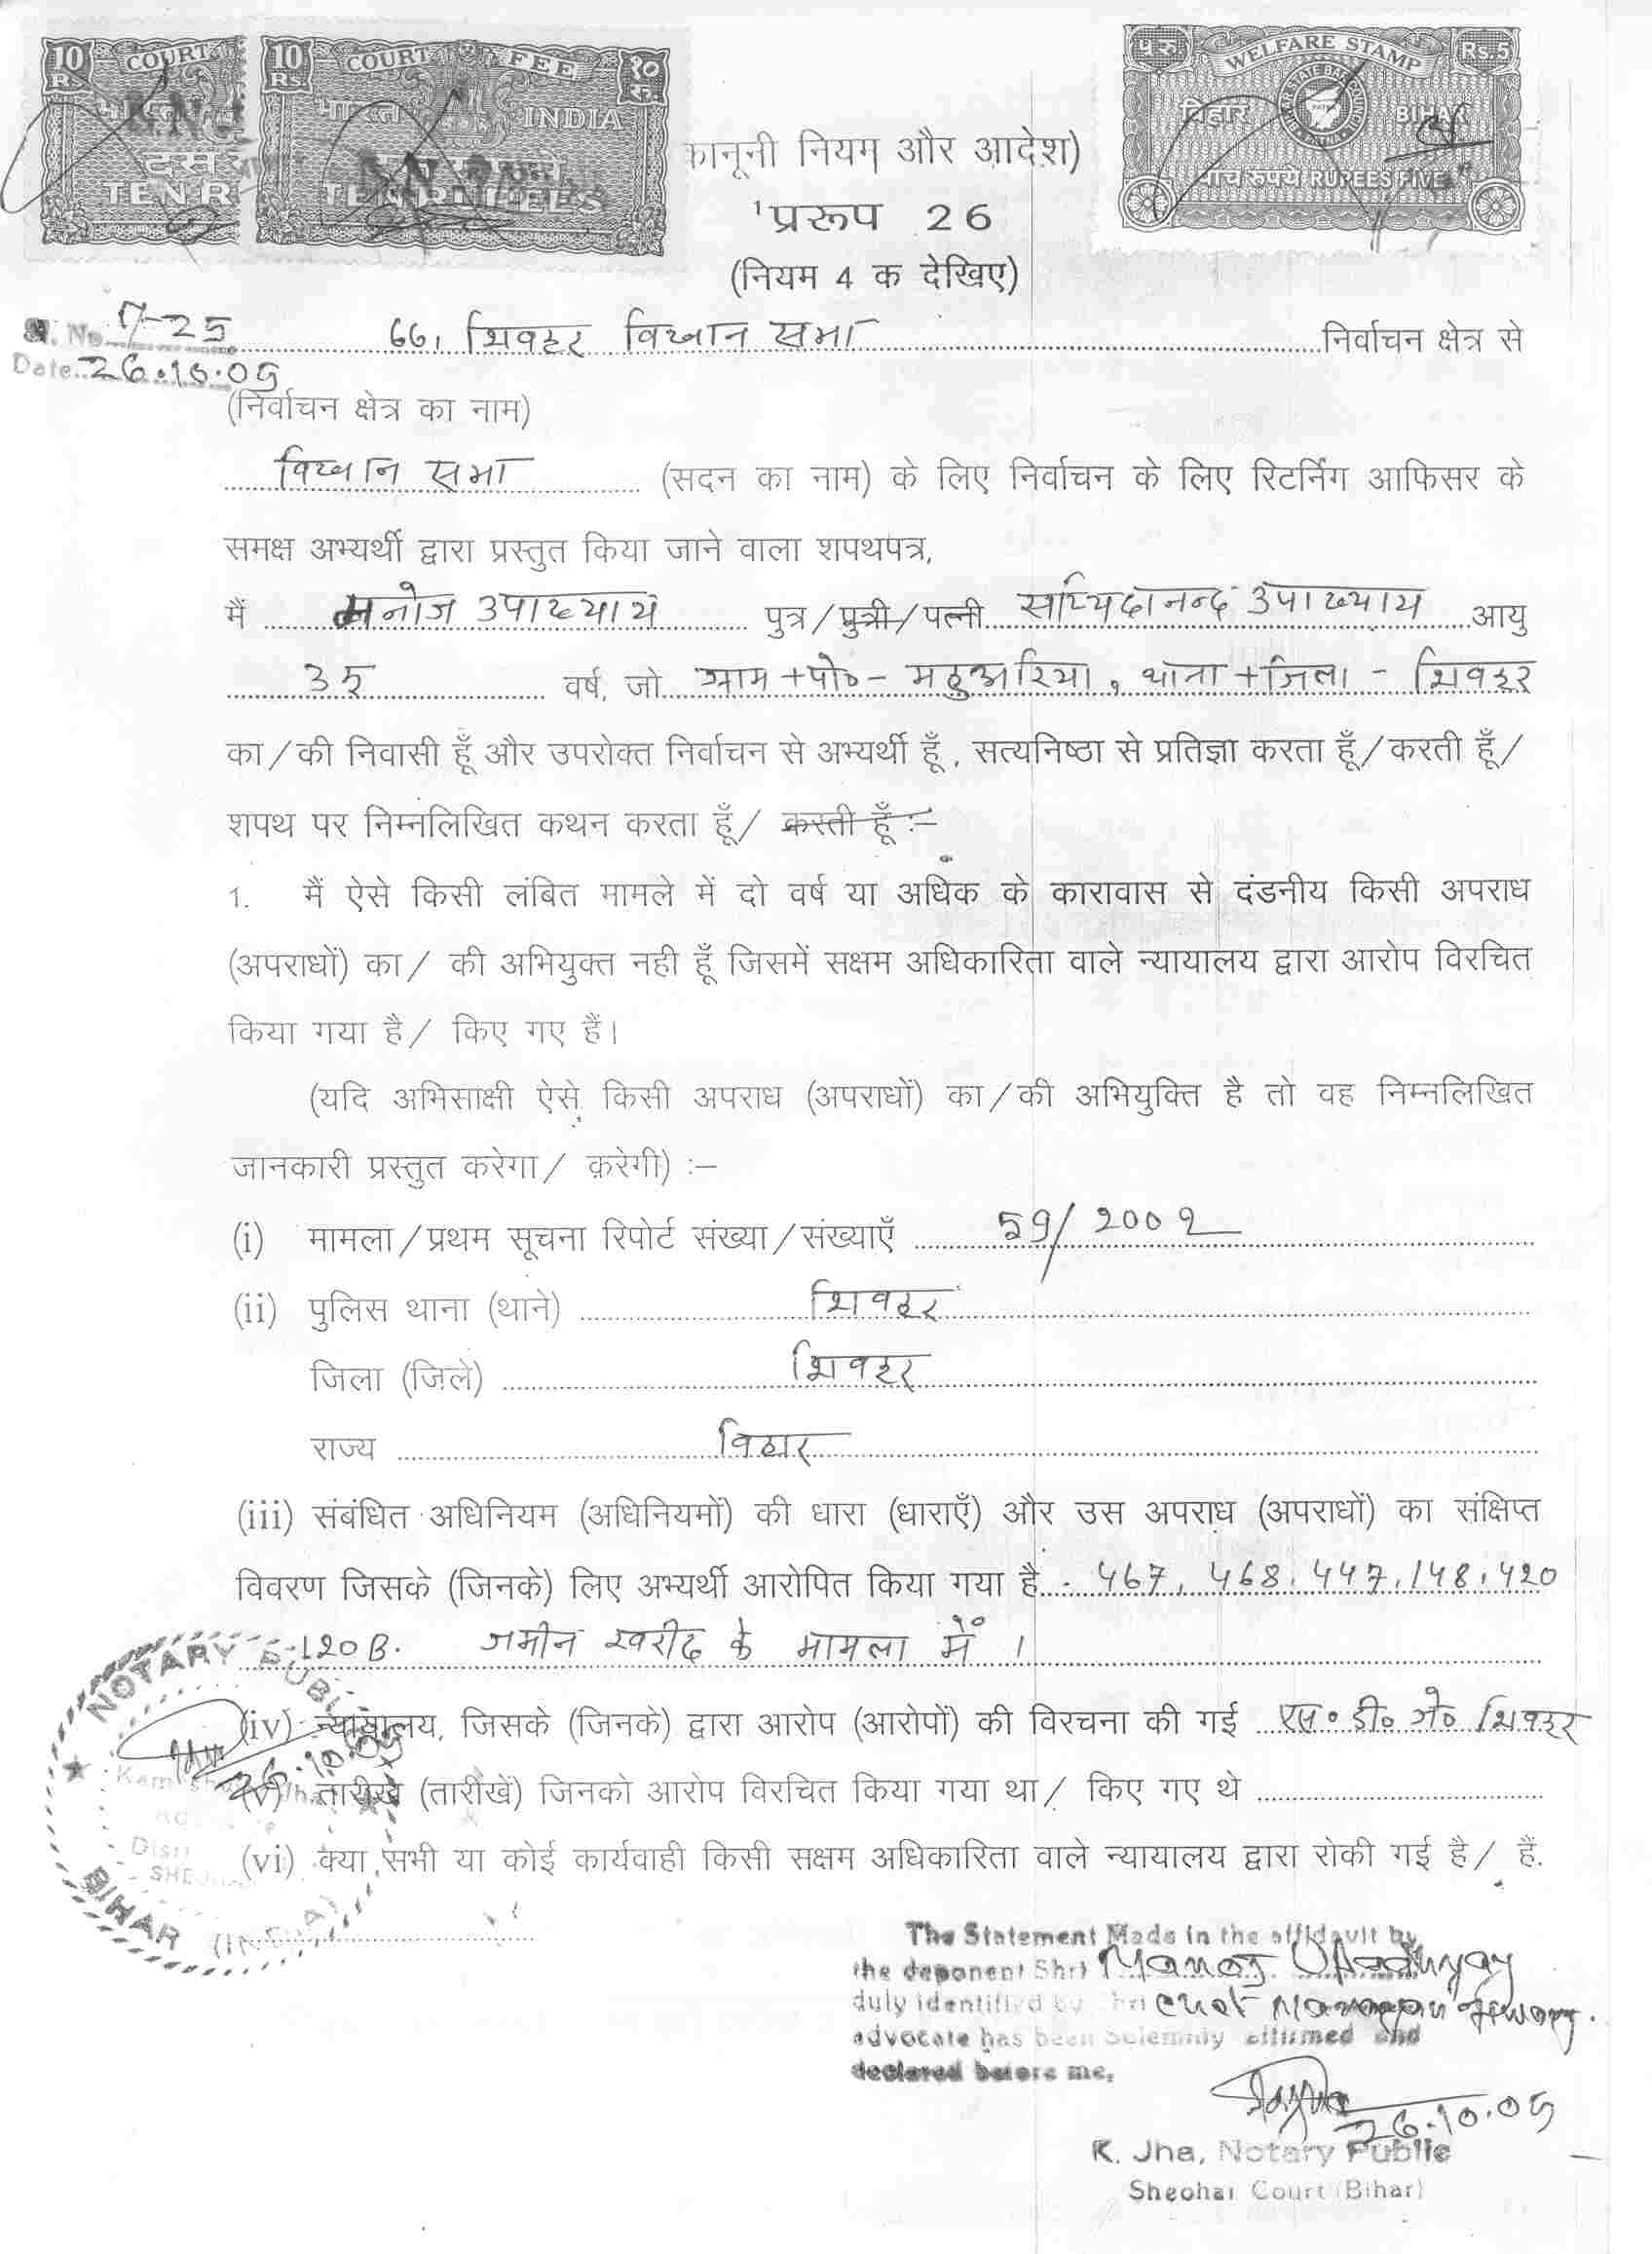 10 Rs. COURT
भारत
TEN R
10 Rs. COURT FEE १० रु.
भारत INDIA
TEN RUPEES
५ रु. WELFARE STAMP Rs.5
बिहार BIHAR
पाँच रुपये RUPEES FIVE
कानूनी नियम और आदेश)
'प्ररूप 26
(नियम 4 क देखिए)
No. 7-25 66, शिवहर विधान सभा निर्वाचन क्षेत्र से
Date. 26.10.05
(निर्वाचन क्षेत्र का नाम)
विधान सभा (सदन का नाम) के लिए निर्वाचन के लिए रिटर्निंग आफिसर के
समक्ष अभ्यर्थी द्वारा प्रस्तुत किया जाने वाला शपथपत्र,
मैं मनोज उपाध्याय पुत्र/पुत्री/पत्नी सच्चिदानन्द उपाध्याय आयु
35 वर्ष, जो ग्राम+पो०- महुअरिया, थाना+जिला - शिवहर
का/की निवासी हूँ और उपरोक्त निर्वाचन से अभ्यर्थी हूँ, सत्यनिष्ठा से प्रतिज्ञा करता हूँ/करती हूँ/
शपथ पर निम्नलिखित कथन करता हूँ/ करती हूँ :-
1. मैं ऐसे किसी लंबित मामले में दो वर्ष या अधिक के कारावास से दंडनीय किसी अपराध
(अपराधों) का/ की अभियुक्त नही हूँ जिसमें सक्षम अधिकारिता वाले न्यायालय द्वारा आरोप विरचित
किया गया है/ किए गए हैं।
(यदि अभिसाक्षी ऐसे किसी अपराध (अपराधों) का/की अभियुक्ति है तो वह निम्नलिखित
जानकारी प्रस्तुत करेगा/ करेगी) :-
(i) मामला/प्रथम सूचना रिपोर्ट संख्या/संख्याएँ 59/2002
(ii) पुलिस थाना (थाने) शिवहर
जिला (जिले) शिवहर
राज्य बिहार
(iii) संबंधित अधिनियम (अधिनियमों) की धारा (धाराएँ) और उस अपराध (अपराधों) का संक्षिप्त
विवरण जिसके (जिनके) लिए अभ्यर्थी आरोपित किया गया है - 467, 468, 447, 148, 420
120B. जमीन खरीद के मामला में ।
(iv) न्यायालय, जिसके (जिनके) द्वारा आरोप (आरोपों) की विरचना की गई एस० डी० जे० शिवहर
(v) तारीखे (तारीखें) जिनको आरोप विरचित किया गया था/ किए गए थे
(vi) क्या सभी या कोई कार्यवाही किसी सक्षम अधिकारिता वाले न्यायालय द्वारा रोकी गई है/ हैं.
NOTARY PUBLIC
26.10.05
BIHAR (INDIA)
The Statement Made in the affidavit by
the deponent Shri Manoj Upadhyay
duly identified by Shri
advocate has been solemnly affirmed and
declared before me.
26.10.05
K. Jha, Notary Public
Sheohar Court (Bihar)